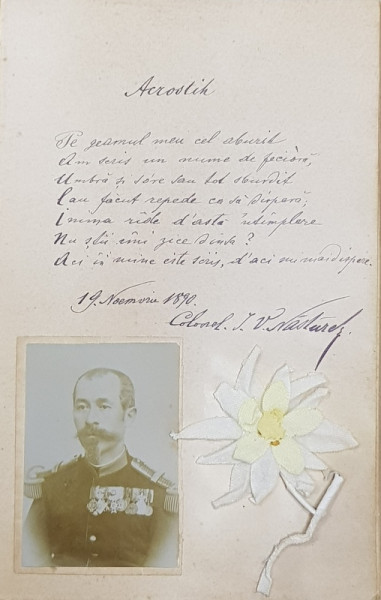 Acrostih
Pe geamul meu cel aburit
Am scris un nume de fecióră,
Umbră și sóre sau tot sburdit
Lau făcut repede ca să dispară,
Inima rîde d'astă întimplare
Nu știi îmi zice
Aci în mine este scris, d'aci nu mai dispare.
19. Noemvrie 1890.
Colonel. I. V. Năsturel